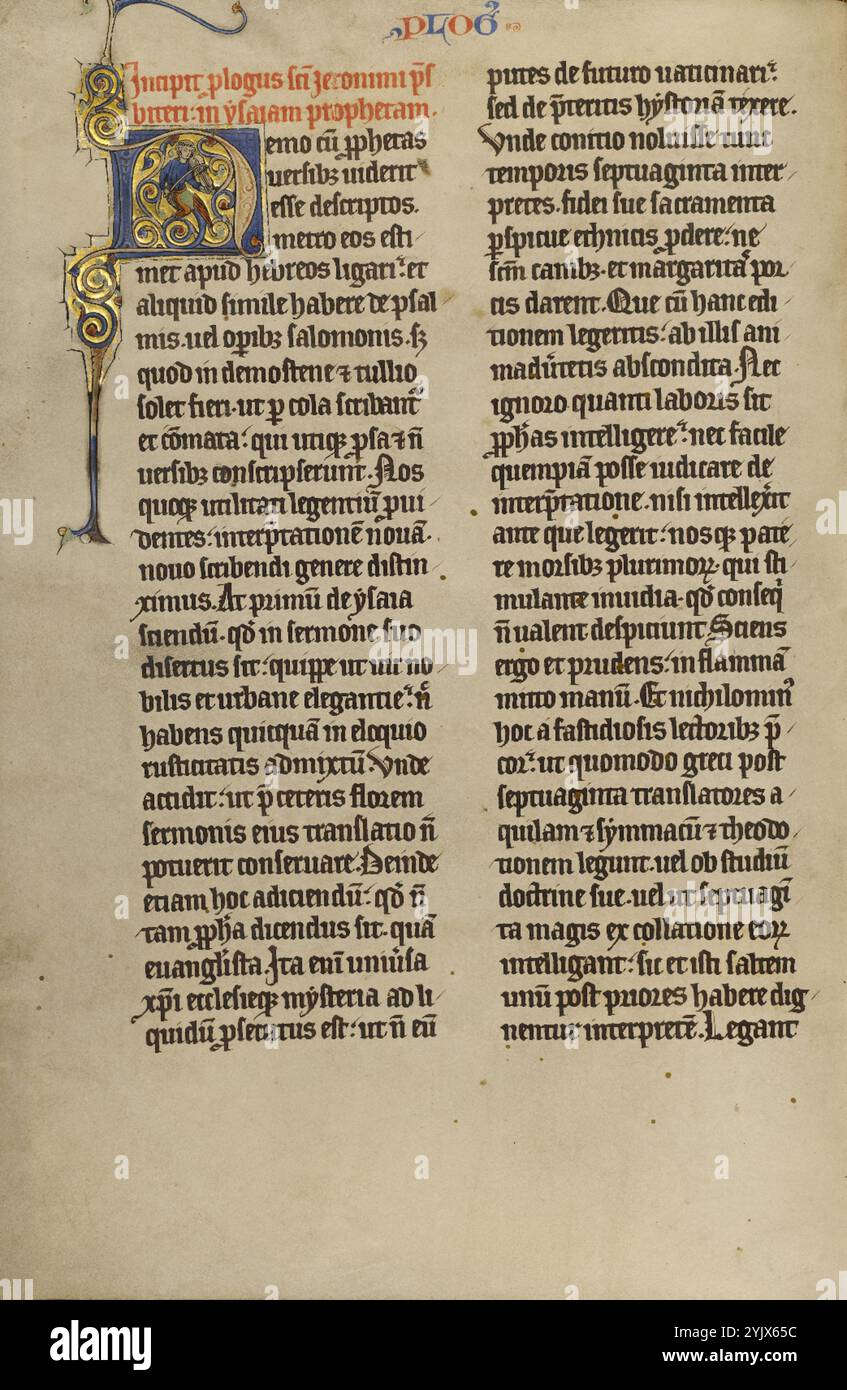 PLOG᷒
Incipit plogus sci Jeronimi ps
biteri in ysaiam prophetam.
Nemo cū ꝓphetas
uersibꝫ uiderit
esse descriptos.
metro eos esti
met apud hebreos ligari. et
aliquid simile habere de psal
mis. uel oꝑibꝫ salomonis. sꝫ
quod in demostene ⁊ tullio
solet fieri. ut ꝑ cola scribant᷑
et cōmata. qui utiqꝫ ꝓsa ⁊ n̄
uersibꝫ conscripserunt. Nos
quoqꝫ utilitati legentiū ꝓui
dentes. interp̄tationē nouā.
nouo scribendi genere distin
ximus. Ac primū de ysaia
sciendū. qđ in sermone suo
disertus sit. quippe ut uir no
bilis et urbane elegantie. n̄
habens quicquā in eloquio
rusticitatis admixtū. Vnde
accidit. ut p̄ ceteris florem
sermonis eius translatio n̄
potuerit conseruare. Deinde
etiam hoc adiciendū. qđ n̄
tam ꝓph̄a dicendus sit. quā
euangl̄ista. Ita eni uniūsa
xp̄i ecclesieqꝫ mysteria ad li
quidū ꝓsecutus est. ut n̄ eū
putes de futuro uaticinari.
sed de p̄teritis hystoriā texere.
Vnde conitio noluisse tunc
temporis septuaginta inter
pretes. fidei sue sacramenta
ꝑspicue ethnicis ꝓdere. ne
scm̄ canibꝫ. et margaritas por
cis darent. Que cū hanc edi
tionem legeritis. ab illis ani
maduertetis abscondita. Nec
ignoro quanti laboris sit
ꝓph̄as intelligere. nec facile
quempiā posse iudicare de
interp̄tatione. nisi intellexit
ante que legerit. nos qꝫ pate
re morsibꝫ plurimoꝝ. qui sti
mulante inuidia. qđ conseq
n̄ ualent despiciunt. Sciens
ergo et prudens. in flammā
mitto manū. Et nichilomin᷒
hoc a fastidiosis lectoribꝫ p̄
cor. ut quomodo greci post
septuaginta translatores a
quilam ⁊ symmacū ⁊ theodo
tionem legunt. uel ob studiū
doctrine sue. uel ut septuagī
ta magis ex collatione eoꝝ
intelligant. sic et isti saltem
unū post priores habere dig
nentur interpretē. Legant
alamy
Image ID: 2YJX65C
www.alamy.com